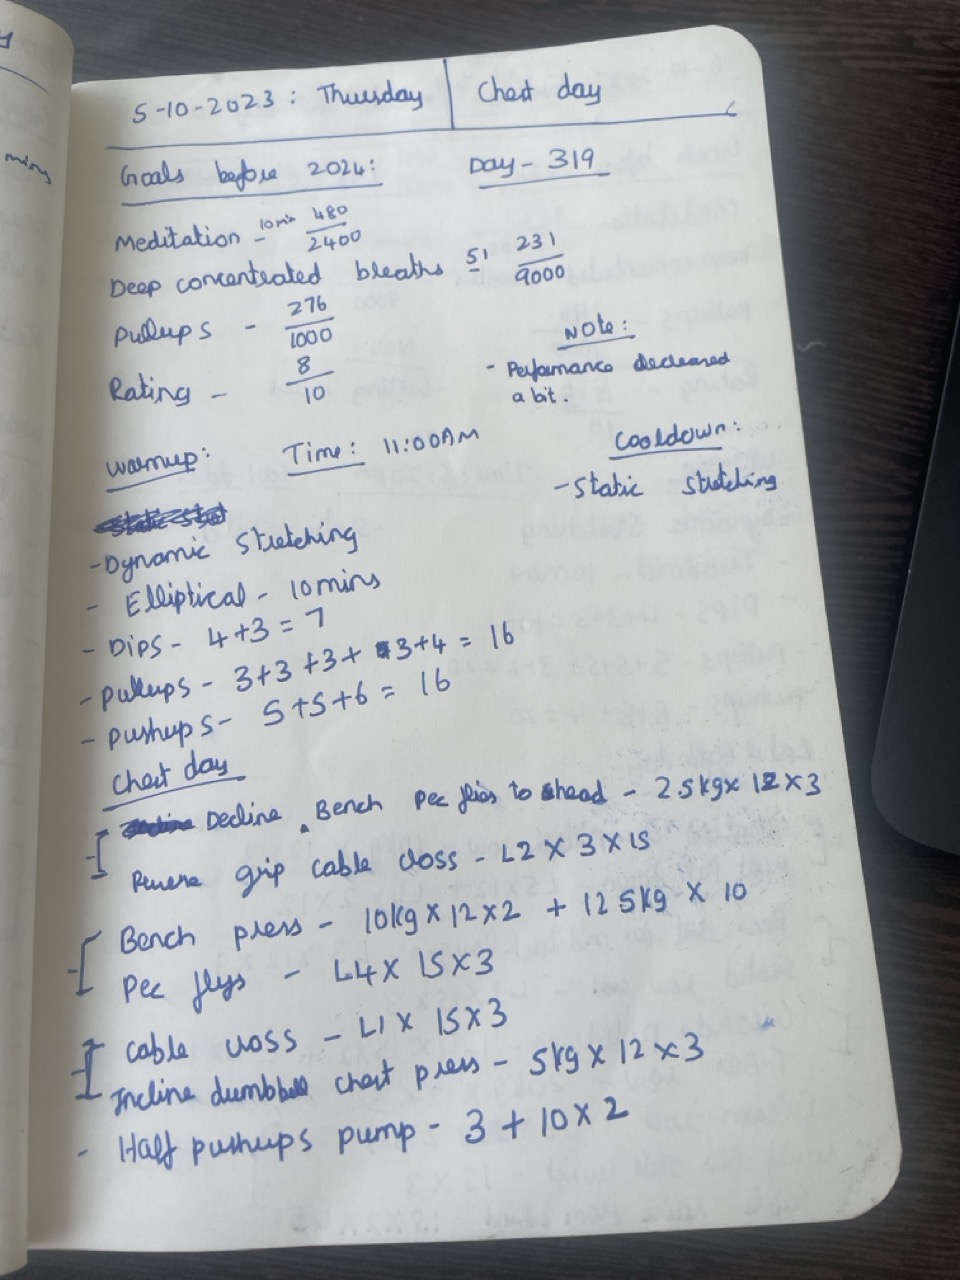 5-10-2023 : Thursday | Chest day
Goals before 2024: Day - 319
Meditation - 10 min 480/2400
Deep concentrated breaths 51 231/9000
Pullups - 276/1000
Rating - 8/10
Note:
- Performance decreased
a bit.
Warmup: Time: 11:00AM
Cooldown:
- Static stretching
- Dynamic stretching
- Elliptical - 10 mins
- Dips - 4+3 = 7
- Pullups - 3+3+3+3+4 = 16
- Pushups - 5+5+6 = 16
Chest day
Decline Bench pec flies to head - 2.5kg x 12 x 3
Reverse grip cable cross - L2 x 3 x 15
Bench press - 10kg x 12 x 2 + 12.5kg x 10
Pec flys - L4 x 15 x 3
Cable cross - L1 x 15 x 3
Incline dumbbell chest press - 5kg x 12 x 3
- Half pushups pump - 3 + 10 x 2